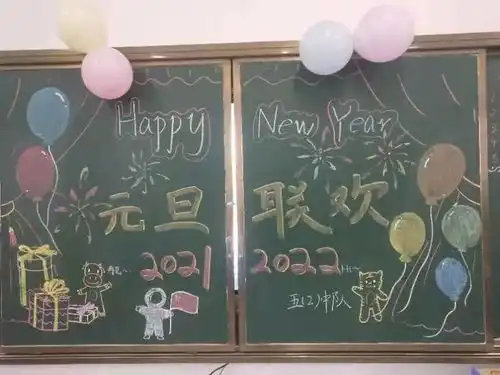 Happy New Year
元旦联欢
2021 2022
Hi~
五(2)中队